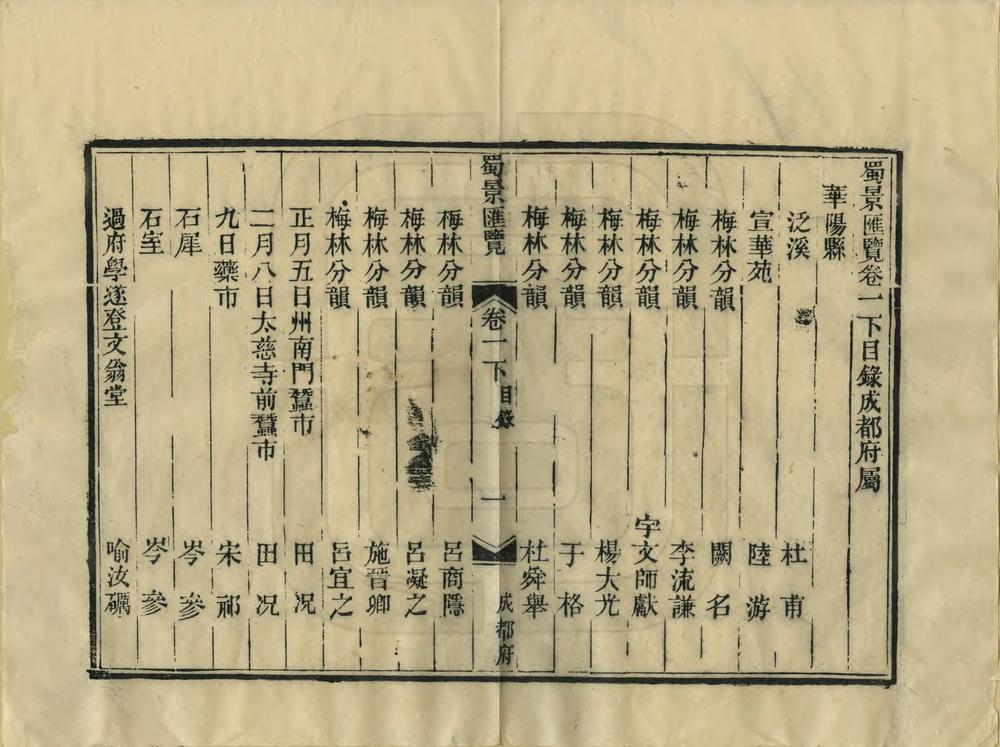 蜀景匯覽卷一下目錄成都府屬
華陽縣
泛溪 杜甫
宣華苑 陸游
梅林分韻 闕名
梅林分韻 李流謙
梅林分韻 宇文師獻
梅林分韻 楊大光
梅林分韻 于格
梅林分韻 杜舜舉
蜀景匯覽 卷一下目錄 一 成都府
梅林分韻 呂商隱
梅林分韻 呂凝之
梅林分韻 施晉卿
梅林分韻 呂宜之
正月五日州南門蠶市 田况
二月八日太慈寺前蠶市 田况
九日藥市 宋祁
石犀 岑參
石室 岑參
過府學遂登文翁堂 喻汝礪